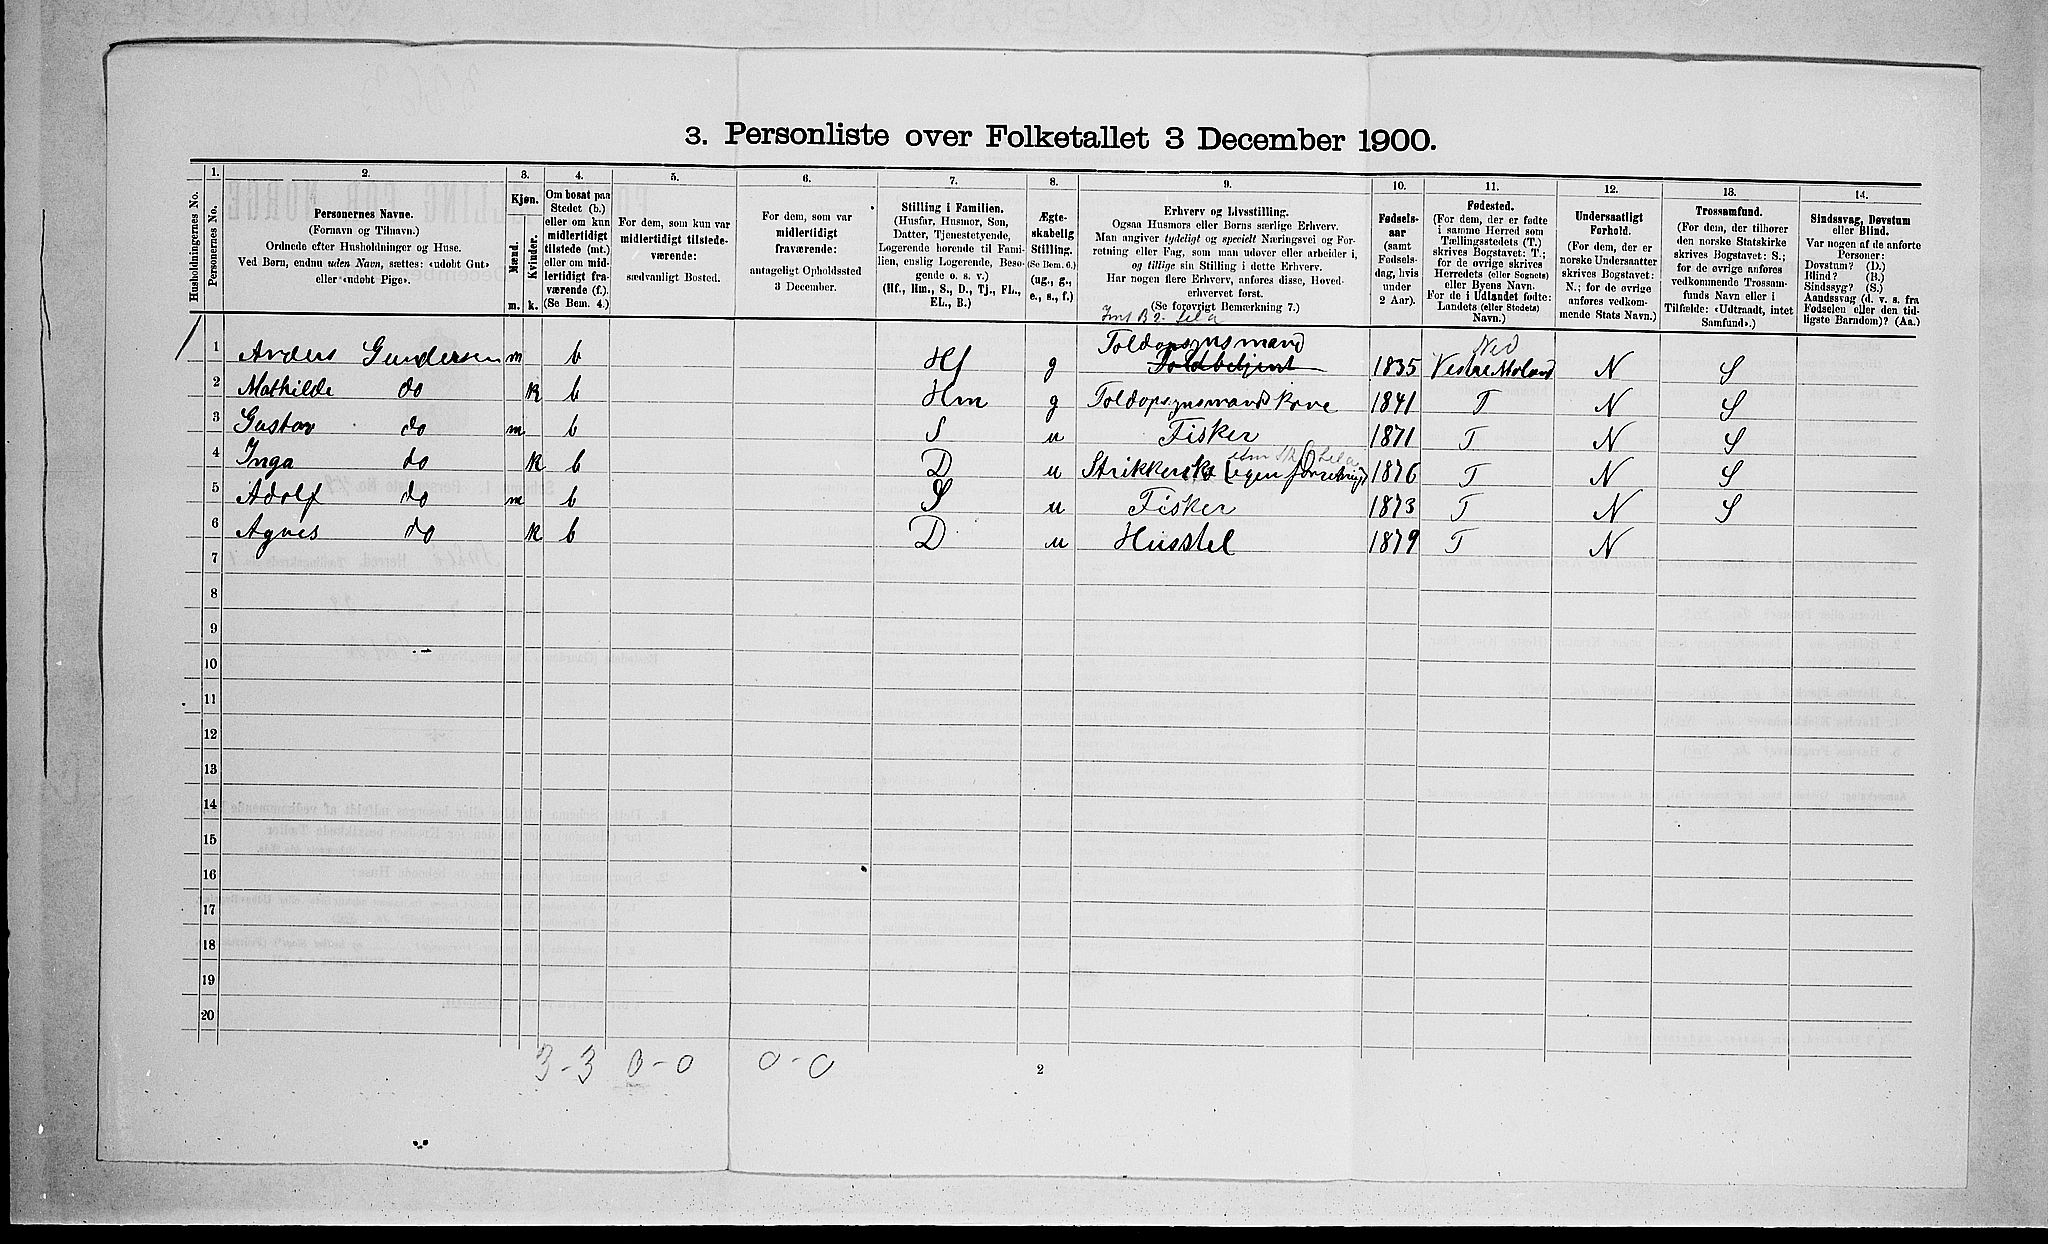 3. Personliste over Folketallet 3 December 1900.
Husholdningernes No.
1.
Personernes No.
2.
Personernes Navne.
(Fornavn og Tilnavn.)
Ordnede efter Husholdninger og Huse.
Ved Børn, endnu uden Navn, sættes: «udøbt Gut»
eller «udøbt Pige».
3.
Kjøn.
Mænd.
Kvinder.
m. k.
4.
Om bosat paa
Stedet (b.)
eller om kun
midlertidigt
tilstede (mt.)
eller om mid-
lertidigt fra-
værende (f.).
(Se Bem. 4.)
5.
For dem, som kun var
midlertidigt tilstede-
værende:
sædvanligt Bosted.
6.
For dem, som var
midlertidigt
fraværende:
antageligt Opholdssted
3 December.
7.
Stilling i Familien.
(Husfar, Husmor, Søn,
Datter, Tjenestetyende,
Logerende hørende til Fami-
lien, enslig Logerende, Besø-
gende o. s. v.)
(Hf., Hm., S., D., Tj., FL.,
EL., B.)
8.
Ægte-
skabelig
Stilling.
(Se Bem. 6.)
(ug., g.,
e., s., f.)
9.
Erhverv og Livsstilling.
Ogsaa Husmors eller Børns særlige Erhverv.
Man angiver tydeligt og specielt Næringsvei og For-
retning eller Fag, som man udøver eller arbeider i,
og tillige sin Stilling i dette Erhverv.
Har nogen flere Erhverv, anføres disse, Hoved-
erhvervet først.
(Se forøvrigt Bemærkning 7.)
10.
Fødsels-
aar
(samt
Fødsels-
dag, hvis
under
2 Aar).
11.
Fødested.
(For dem, der er fødte
i samme Herred som
Tællingsstedets (T.)
skrives Bogstavet: T.;
for de øvrige skrives
Herredets (eller Sognets)
eller Byens Navn.
For de i Udlandet fødte:
Landets (eller Stedets)
Navn.)
12.
Undersaatligt
Forhold.
(For dem, der er
norske Undersaatter
skrives Bogstavet:
N.; for de øvrige
anføres vedkom-
mende Stats Navn.)
13.
Trossamfund.
(For dem, der tilhører
den norske Statskirke
skrives Bogstavet: S.;
for de øvrige anføres
vedkommende Trossam-
funds Navn eller i
Tilfælde: «Udtraadt, intet
Samfund».)
14.
Sindssvag, Døvstum
eller Blind.
Var nogen af de anførte
Personer:
Døvstum? (D.)
Blind? (B.)
Sindssyg? (S.)
Aandssvag (d. v. s. fra
Fødselen eller den tid-
ligste Barndom)? (Aa.)
Toldopsynsmand Ned
1 Anders Gundersen m b Hf g Toldbetjent 1835 Vestre Moland N S
2 Mathilde do k b Hm g Toldopsynsmands Kone 1841 T N S
3 Gustav do m b S u Fisker 1871 T N S
4 Inga do k b D u Strikkerske (egen forretning) 1876 T N S
5 Adolf do m b S u Fisker 1873 T N S
6 Agnes do k b D u Husstel 1879 T N
7
8
9
10
11
12
13
14
15
16
17
18
19
20
3-3 0-0 0-0
2